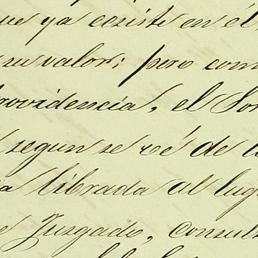 que ya existe en él
su valor; pero com
rovidencia, el Sor
segun se vé de la
a librada al lug
e Juzgado, consul